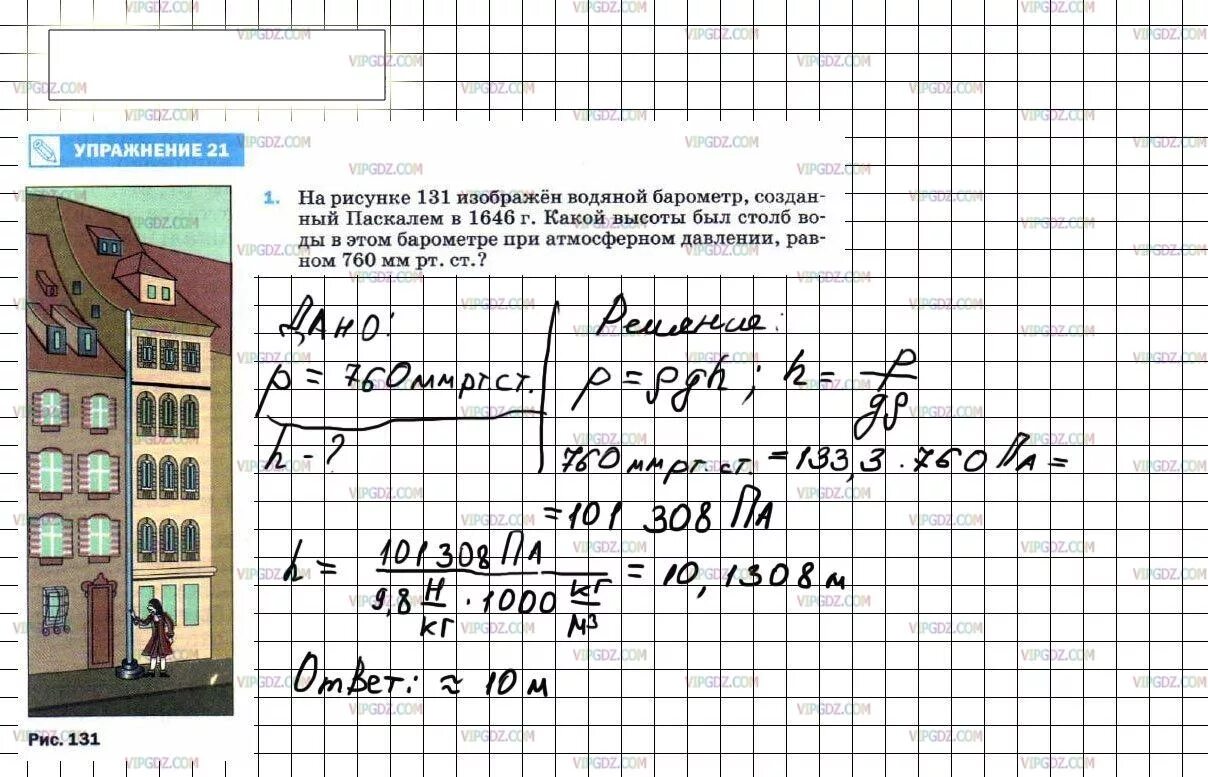 УПРАЖНЕНИЕ 21
1. На рисунке 131 изображён водяной барометр, создан-
ный Паскалем в 1646 г. Какой высоты был столб во-
ды в этом барометре при атмосферном давлении, рав-
ном 760 мм рт. ст.?
Дано:
p = 760 мм рт ст.
h - ?
Решение:
p = ρgh ; h = p/gρ
760 мм рт. ст. = 133,3 · 760 Па =
= 101 308 Па
h = 101 308 Па / 9,8 Н/кг · 1000 кг/м³ = 10,1308 м
Ответ: ≈ 10 м
Рис. 131
VIPGDZ.COM